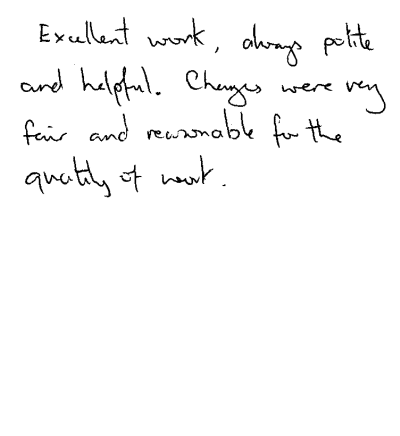 Excellent work, always polite
and helpful. Charges were very
fair and reasonable for the
quality of work.